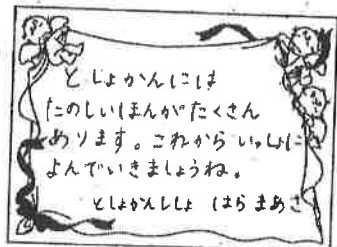 としょかんには
たのしいほんがたくさん
あります。これから いっしょに
よんでいきましょうね。
としょかんししょ はらまあさ